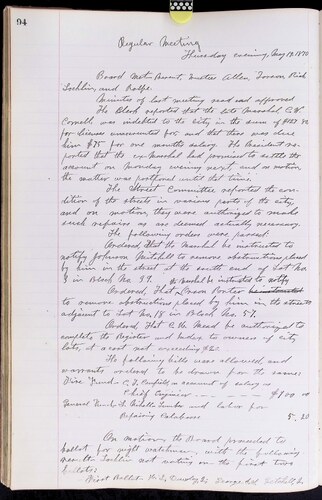 94
Regular Meeting
Thursday evening, May 19, 1870
Board Met. Present, Trustees Allen,
and Rolfe.
Minutes of last meeting read and approved
The Clerk reported that the late Marshal C. W.
was indebted to the City in the sum of
for licenses unaccounted for, and that there was due
him $75 for one months salary. The President re-
ported that the ex-Marshal had promised to settle the
amount on Monday evening next, and on motion,
the matter was postponed until that time.
The Street Committee reported the con-
dition of the streets in various parts of the city,
and on motion, they were authorized to make
such repairs as are deemed actually necessary.
The following orders were passed:
Ordered, That the Marshal be instructed to
notify Johnson Mitchell to remove obstructions placed
by him in the street at the south end of Lot No.
in Block No. 39.
Ordered, That Marshal be instructed to notify Porter
to remove obstructions placed by him in the street
adjacent to Lot No. 18 in Block No. 57.
Ordered, That C. W. Mead be authorized to
complete the Register and Index to owners of city
lots, at a cost not exceeding
The following bills were allowed, and
warrants ordered to be drawn for the same:
Fire Fund. on account of salary as
Chief Engineer $100 00
General Fund. Lumber and labor for
Repairing
5. 20
On motion, the Board proceeded to
ballot for night watchman, with the following
result: not voting on the first two
ballots:
First Ballot.